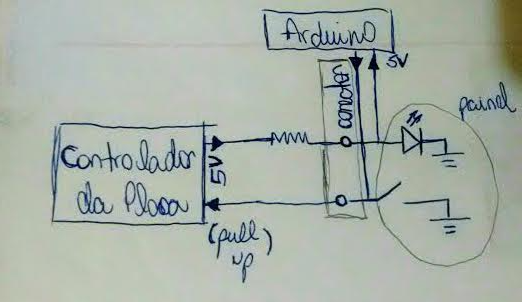 Arduino
conector
5V
painel
Controlador
da Placa
5V
(pull
up)